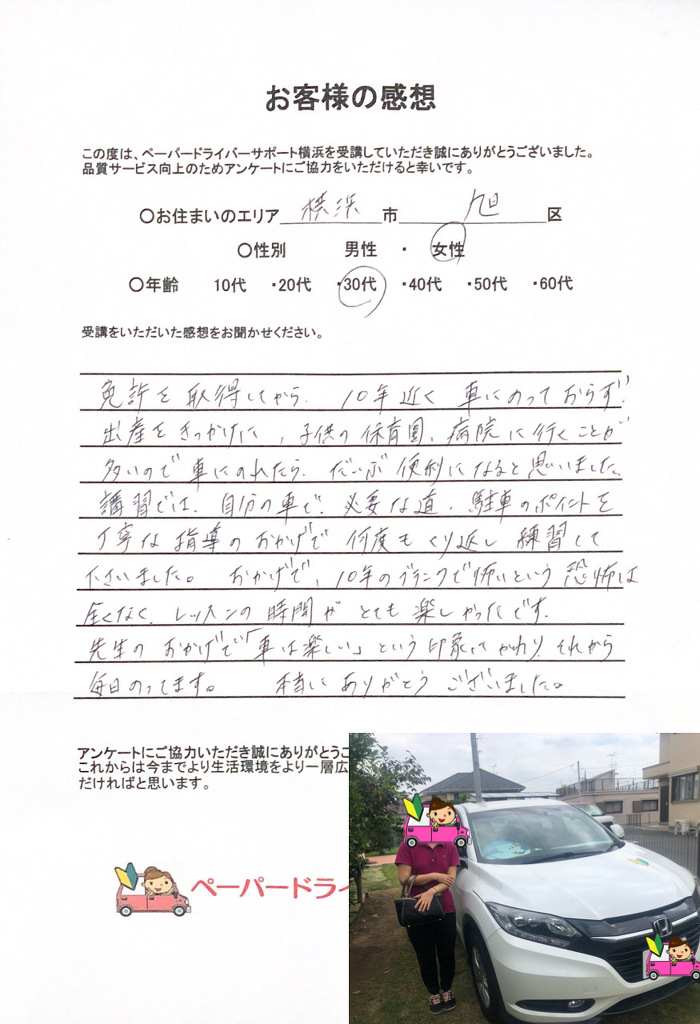 お客様の感想
この度は、ペーパードライバーサポート横浜を受講していただき誠にありがとうございました。
品質サービス向上のためアンケートにご協力をいただけると幸いです。
〇お住まいのエリア 横浜 市 旭 区
〇性別 男性 ・ 女性
〇年齢 10代 ・20代 ・30代 ・40代 ・50代 ・60代
受講をいただいた感想をお聞かせください。
免許を取得してから、10年近く車にのっておらず、
出産をきっかけに、子供の保育園、病院に行くことが
多いので車にのれたら、だいぶ便利になると思いました。
講習では、自分の車で、必要な道、駐車のポイントを
丁寧な指導のおかげで何度もくり返し練習して
下さいました。 おかげで、10年のブランクで怖いという恐怖は
全くなく、レッスンの時間がとても楽しかったです。
先生のおかげで「車は楽しい」という印象にかわり、それから
毎日のってます。 本当にありがとうございました。
アンケートにご協力いただき誠にありがとうご
これからは今までより生活環境をより一層広
だければと思います。
ペーパードライ